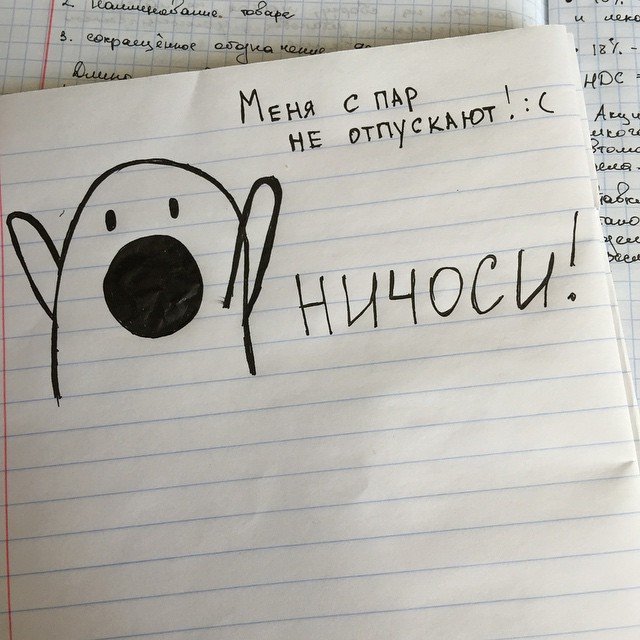 2 наименование товара
3. сокращённое обозначение
Длина
Меня с пар
не отпускают! :(
НИЧОСИ!
18% -
НДС